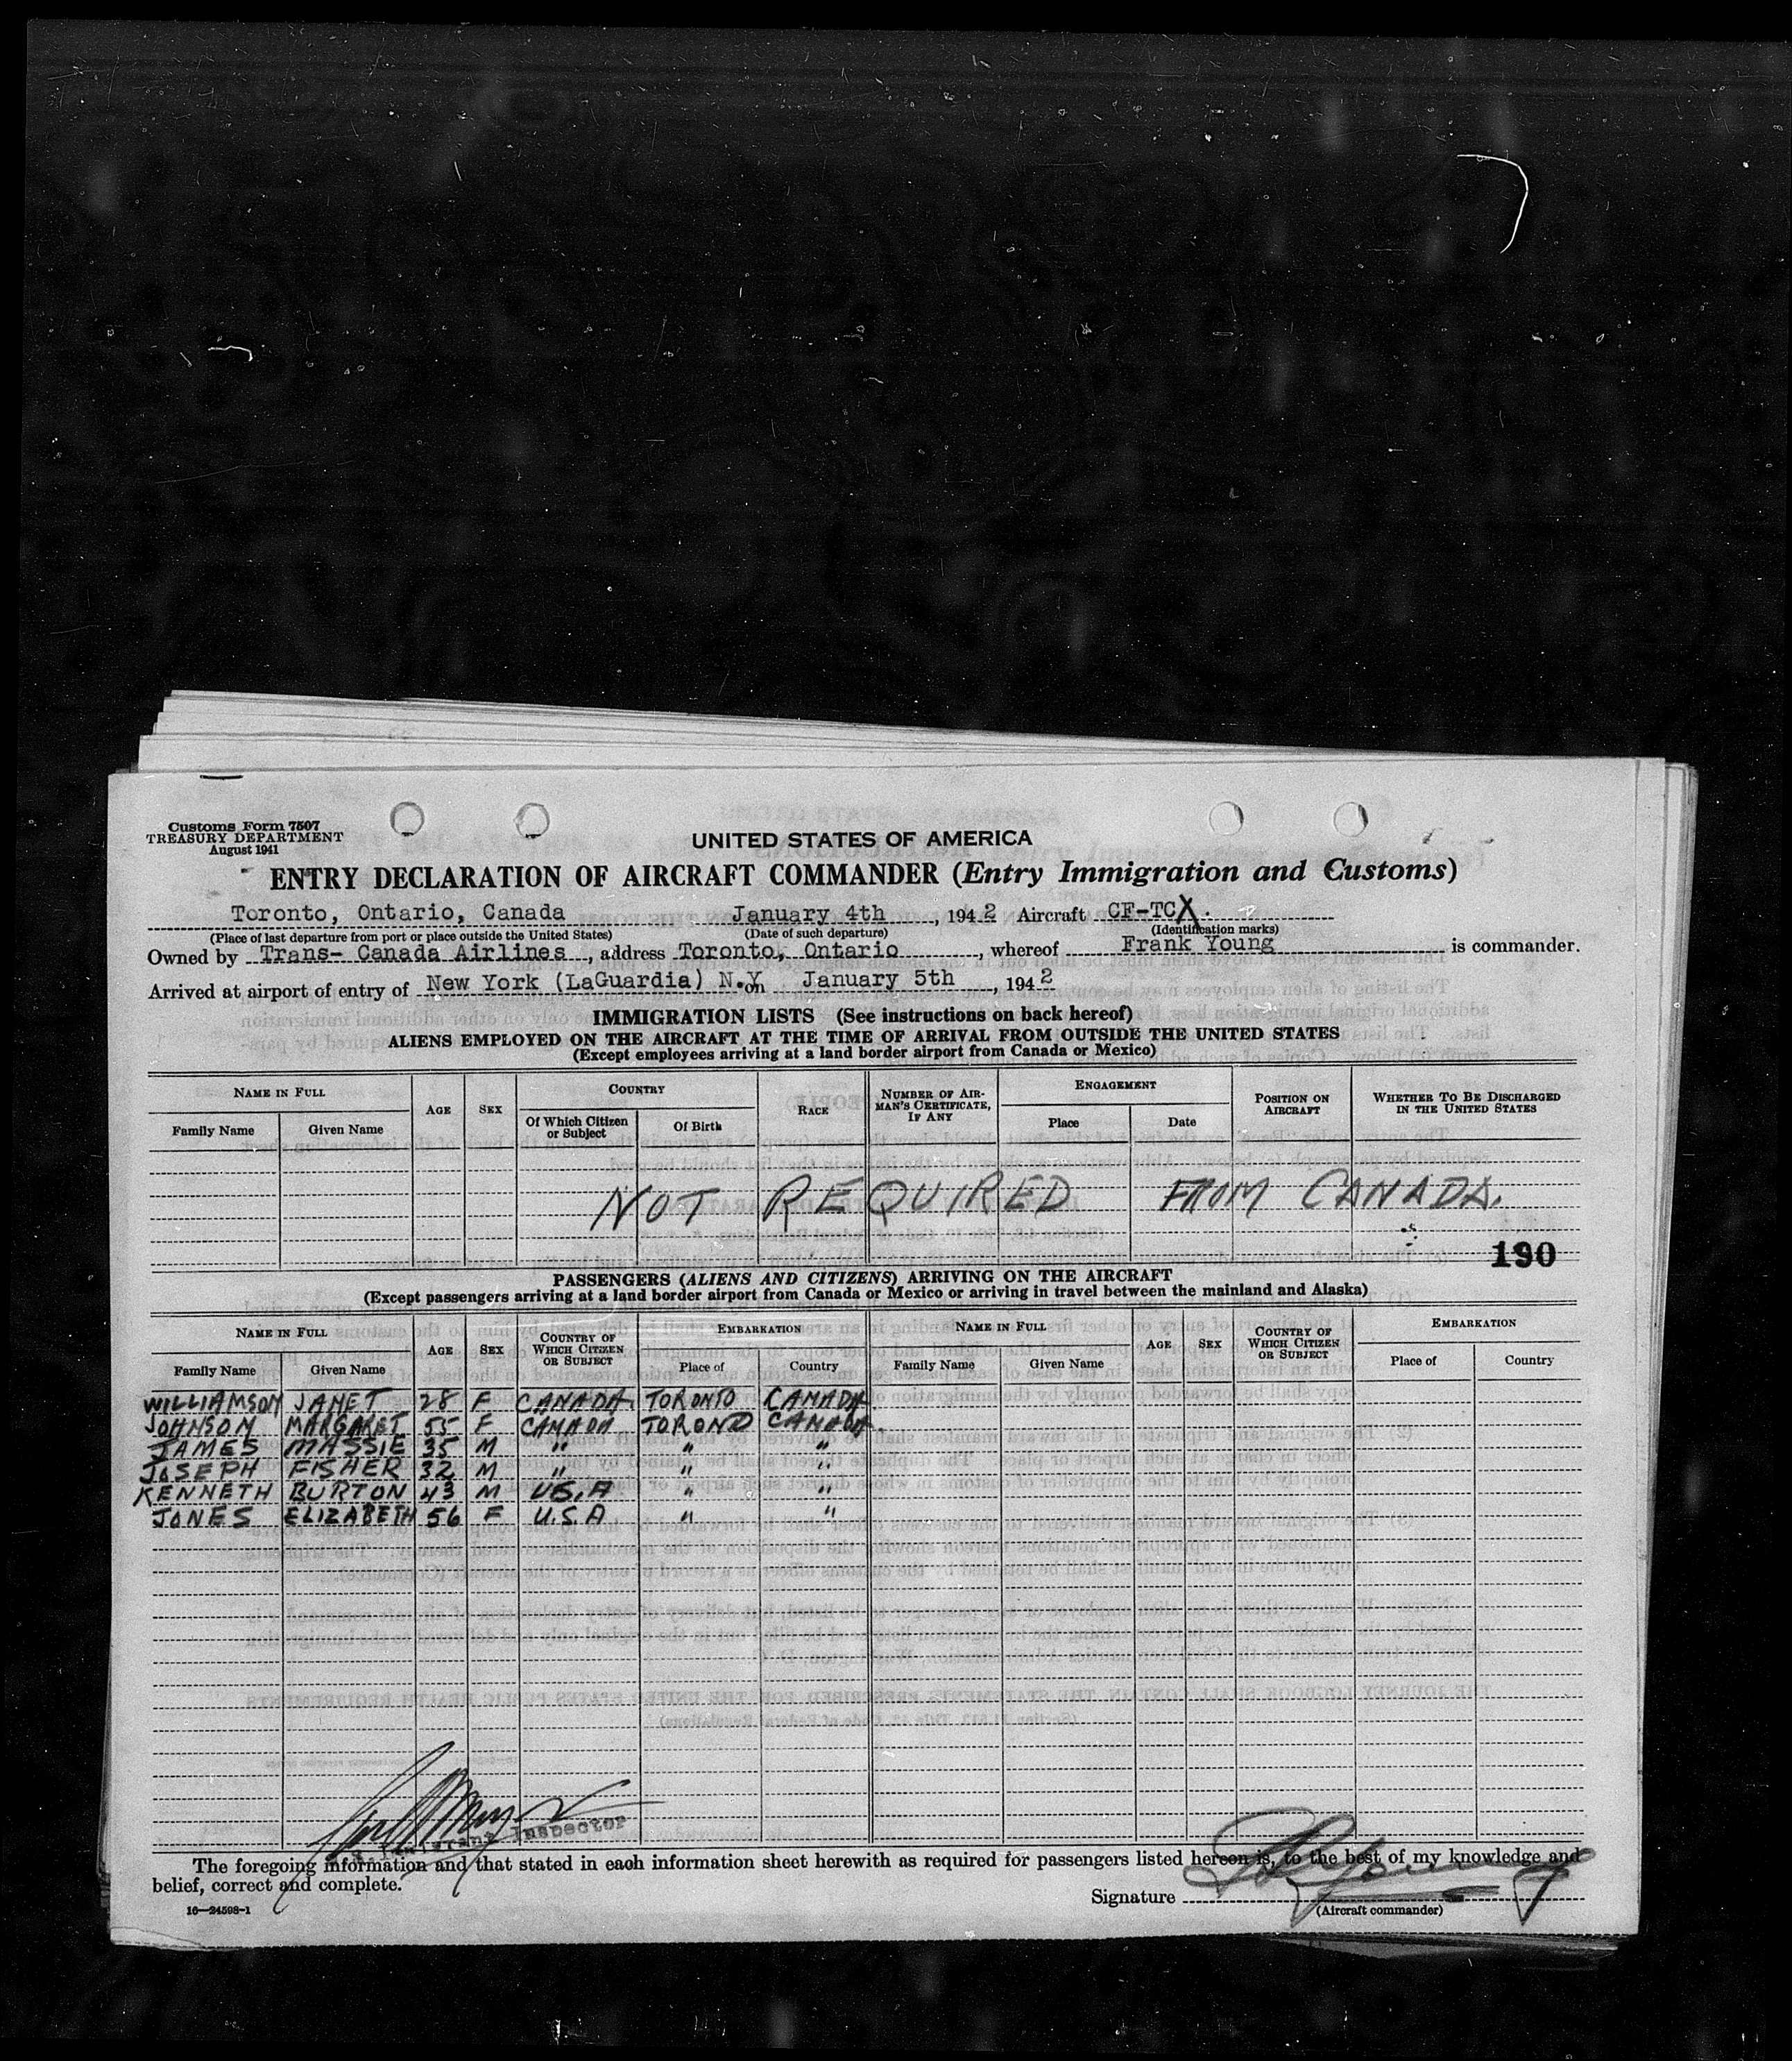 Customs Form 7507
TREASURY DEPARTMENT
August 1941
UNITED STATES OF AMERICA
ENTRY DECLARATION OF AIRCRAFT COMMANDER (Entry Immigration and Customs)
Toronto, Ontario, Canada January 4th, 1942 Aircraft CF-TCX.
(Place of last departure from port or place outside the United States) (Date of such departure) (Identification marks)
Owned by Trans- Canada Airlines, address Toronto, Ontario, whereof Frank Young is commander.
Arrived at airport of entry of New York (LaGuardia) N.Y. on January 5th, 1942
IMMIGRATION LISTS (See instructions on back hereof)
ALIENS EMPLOYED ON THE AIRCRAFT AT THE TIME OF ARRIVAL FROM OUTSIDE THE UNITED STATES
(Except employees arriving at a land border airport from Canada or Mexico)
NAME IN FULL AGE SEX COUNTRY RACE NUMBER OF AIRMAN'S CERTIFICATE, IF ANY ENGAGEMENT POSITION ON AIRCRAFT WHETHER TO BE DISCHARGED IN THE UNITED STATES
Family Name Given Name Of Which Citizen or Subject Of Birth Place Date
NOT REQUIRED FROM CANADA.
190
PASSENGERS (ALIENS AND CITIZENS) ARRIVING ON THE AIRCRAFT
(Except passengers arriving at a land border airport from Canada or Mexico or arriving in travel between the mainland and Alaska)
NAME IN FULL AGE SEX COUNTRY OF WHICH CITIZEN OR SUBJECT EMBARKATION NAME IN FULL AGE SEX COUNTRY OF WHICH CITIZEN OR SUBJECT EMBARKATION
Family Name Given Name Place of Country Family Name Given Name Place of Country
WILLIAMSON JANET 28 F CANADA TORONTO CANADA
JOHNSON MARGARET 55 F CANADA TORONO CANADA
JAMES MASSIE 35 M " " "
JOSEPH FISHER 32 M " " "
KENNETH BURTON 43 M U.S.A " "
JONES ELIZABETH 56 F U.S.A " "
Inspector
The foregoing information and that stated in each information sheet herewith as required for passengers listed hereon is, to the best of my knowledge and
belief, correct and complete.
Signature
(Aircraft commander)
16—24598-1